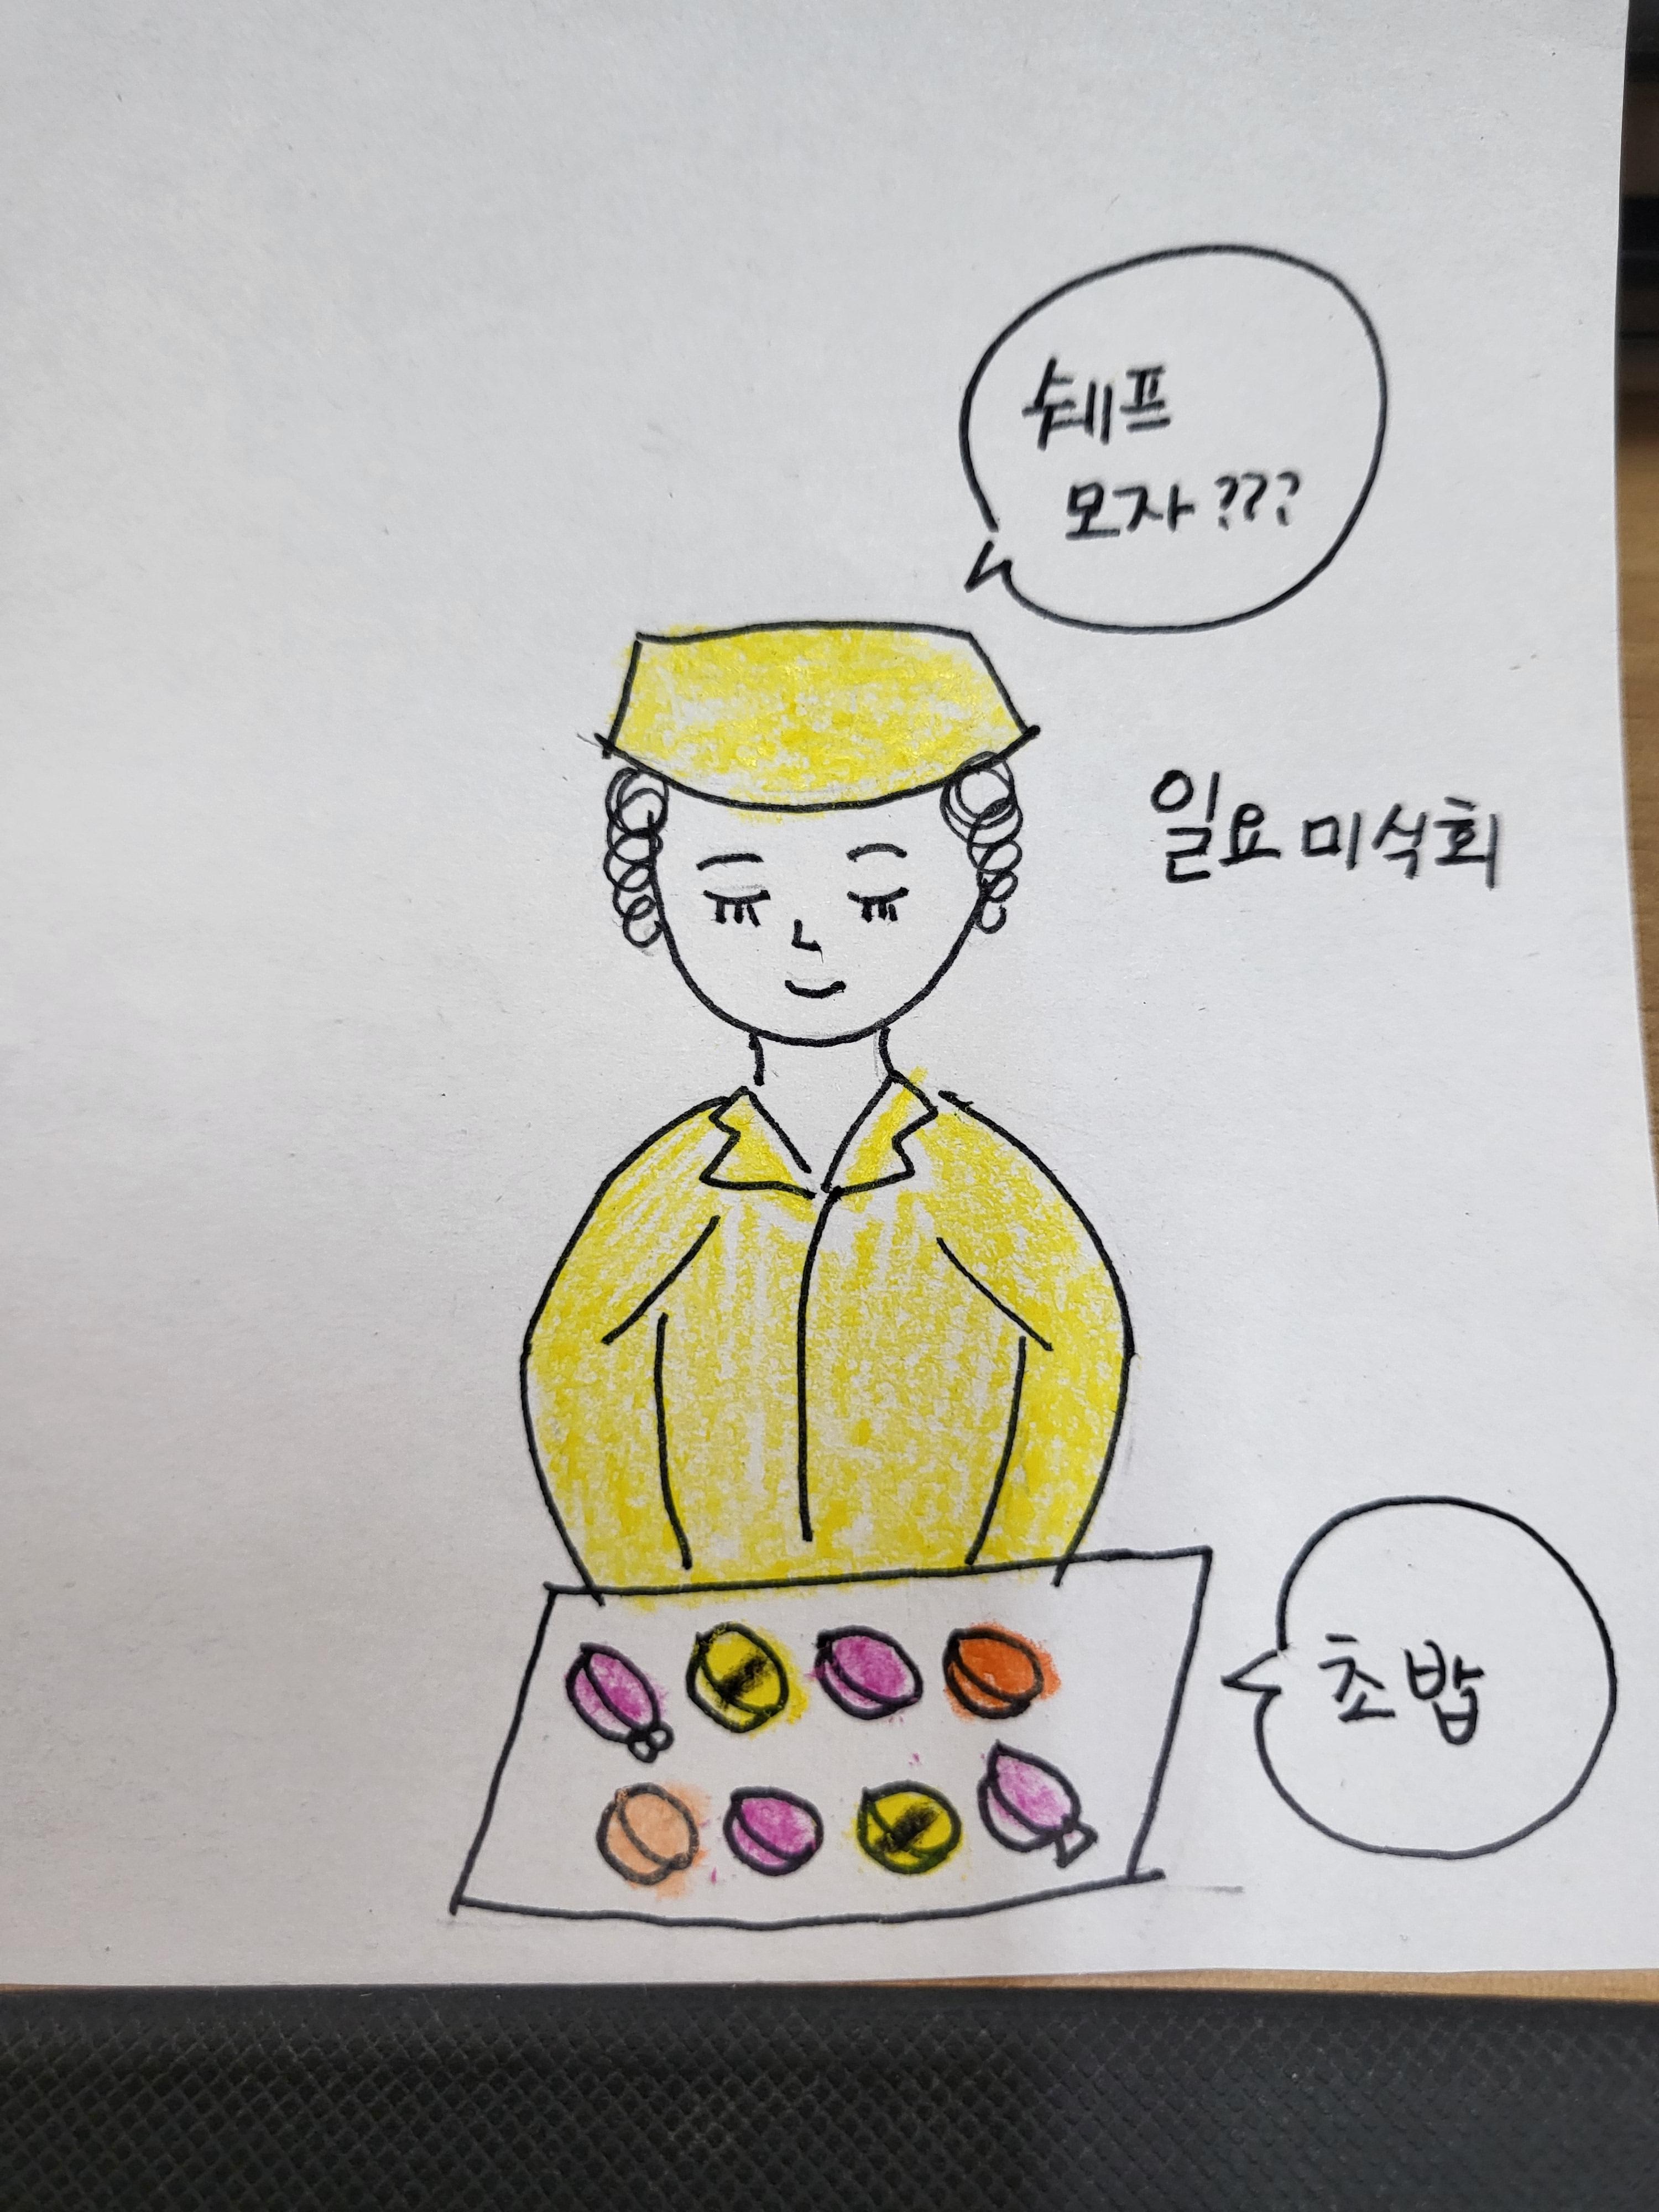 쉐프
모자???
일요 미식회
초밥